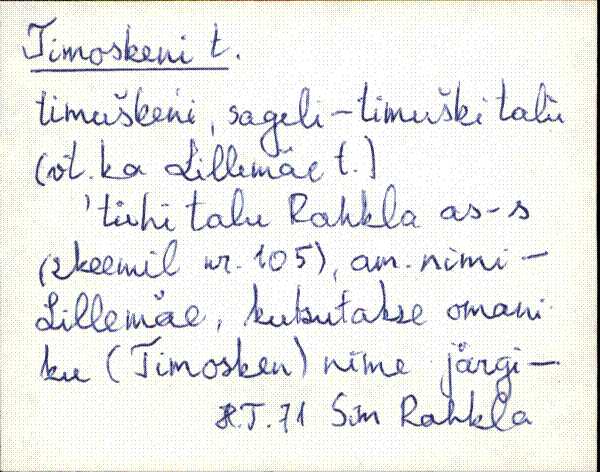 Timoskeni t.
timuškeni, sageli – timuški talu
(vt. ka Lillemäe t.)
'tühi talu Rahkla as-s
(skeemil nr. 105), am. nimi –
Lillemäe, kutsutakse omani
ku (Timosken) nime järgi –
H.T. 71 Sim Rahkla